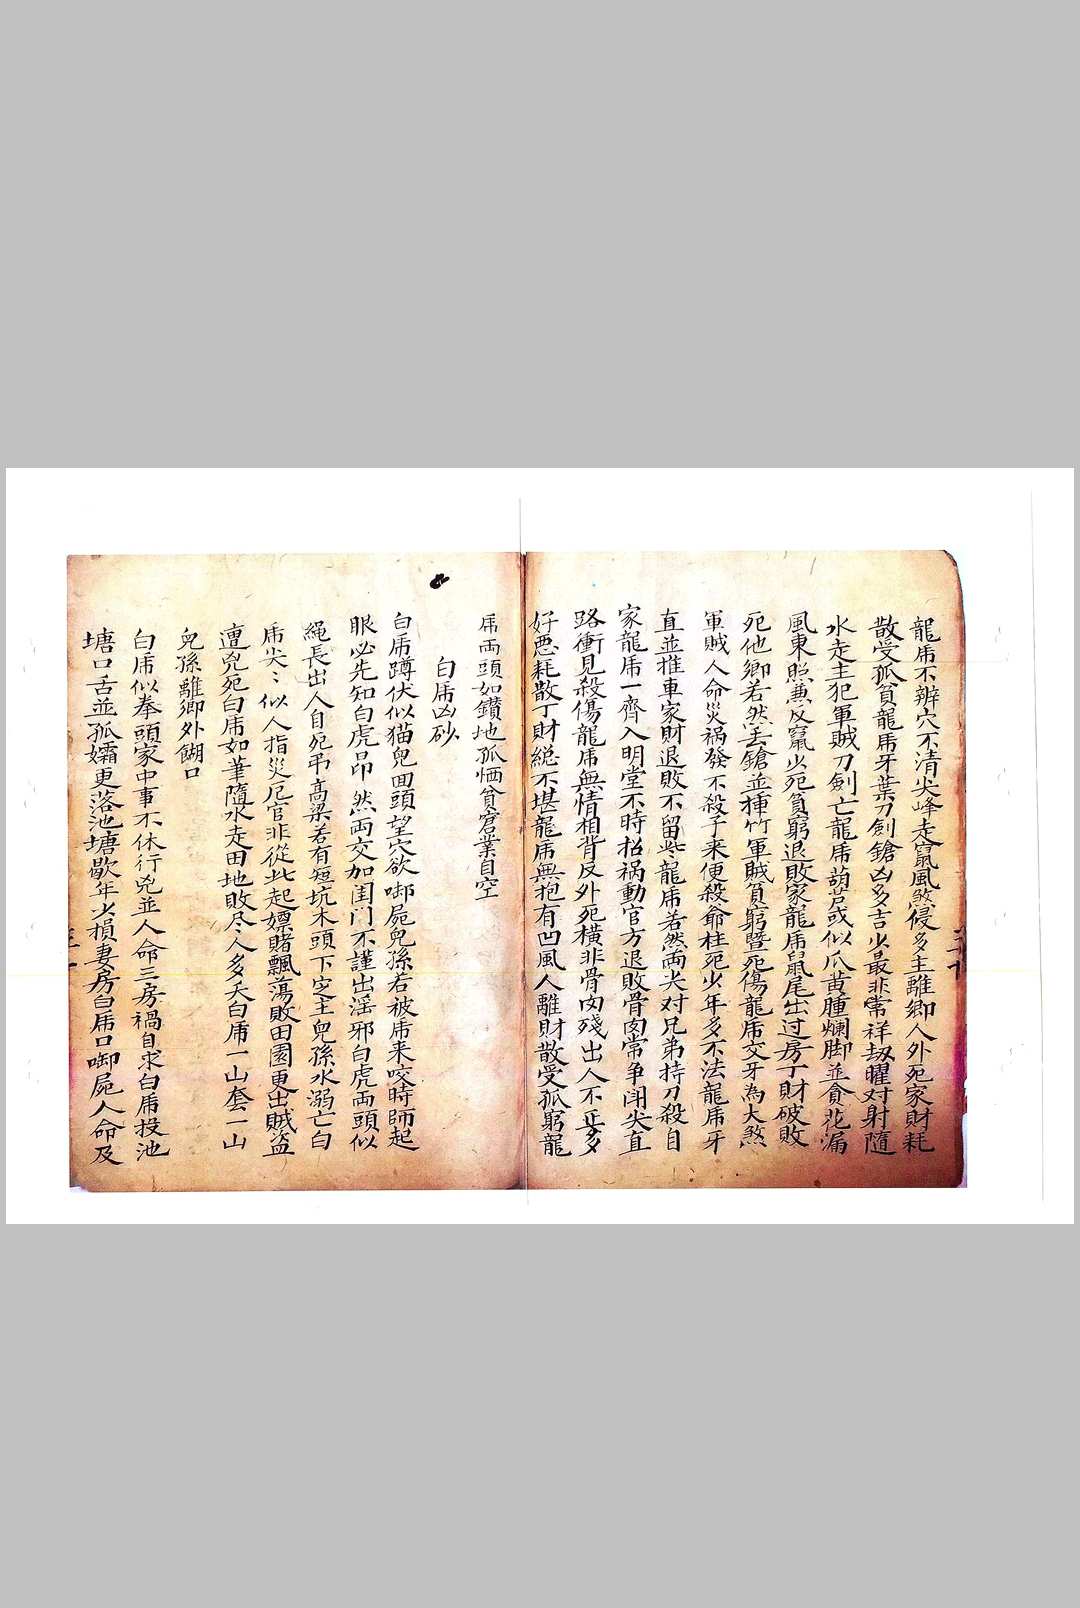 龍乕不辨穴不清尖峰走竄風煞侵多主離鄉人外死家財耗
散受孤貧龍乕牙葉刀劍鎗凶多吉少最非常祥劫曜对射隨
水走主犯軍賊刀劍亡龍乕葫芦或似瓜黄腫爛脚並貪花漏
風東照無反竄少死貧窮退敗家龍乕鼠尾出过房丁財破敗
死他鄉若然丢鎗並挿竹軍賊貧窮暨死傷龍乕交牙為大煞
軍賊人命災祸發不殺子来便殺爺柱死少年多不法龍乕牙
直並推車家財退敗不留些龍乕若然両尖对兄弟持刀殺自
家龍乕一齊入明堂不時招祸動官方退敗骨肉常争閗尖直
路衝見殺傷龍乕無情相背反外死横非骨肉殘出人不正多
好悪耗散丁財絶不堪龍乕無抱有凹風人離財散受孤窮龍
乕両頭如鑽地孤恓貧窘業自空
白乕凶砂
白乕蹲伏似猫兒回頭望穴欲啣屍兒孫若被乕来咬時師起
眼必先知白虎昂然両交加閨门不謹出滛邪白虎両頭似
繩長出人自死吊髙梁若有短坑木頭下定主兒孫水溺亡白
乕尖〻似人指災厄官非從此起嫖賭飄蕩敗田園更出賊盗
遭兇死白乕如筆隨水走田地敗尽人多夭白乕一山套一山
兒孫離鄉外餬口
白乕似拳頭家中事不休行兇並人命三房禍自求白乕投池
塘口舌並孤孀更落池塘歇年少損妻房白乕口啣屍人命及